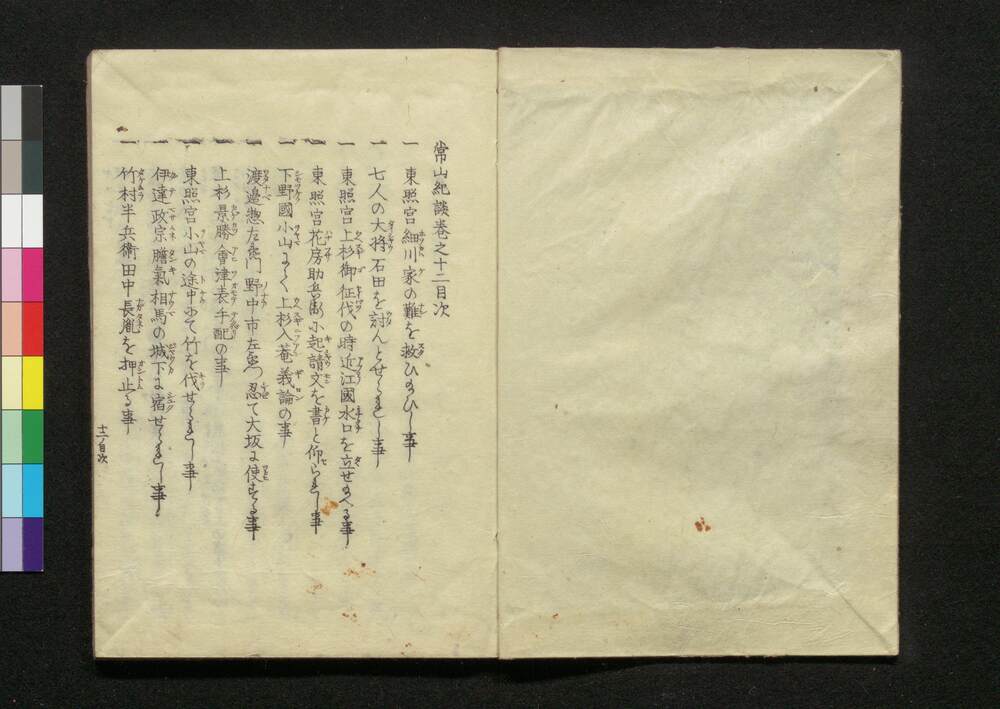 常山紀談巻之十二目次
一 東照宮細川家の難を救ひ給ひし事
一 七人の大将石田を討んとせられし事
一 東照宮上杉御征伐の時近江國水口を立せ給へる事
一 東照宮花房助兵衛に起請文を書と仰られし事
一 下野國小山にて上杉入菴義論の事
一 渡邉惣左衛門野中市左衛門忍て大坂に使する事
一 上杉景勝會津表手配の事
一 東照宮小山の途中にて竹を伐せられし事
一 伊達政宗膽氣相馬の城下に宿せられし事
一 竹村半兵衛田中長胤を押止る事
十二ノ目次